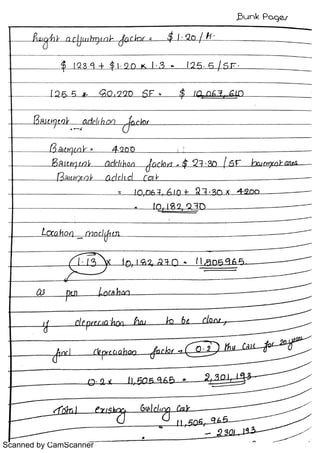 Bunk Pages
height adjustment factor = $ 1.20 / ft.
$ 123.9 + $1.20 x 1.3 = 125.5 / SF.
125.5 x 80,220 SF = $ 10,067,610
Basement addition factor
Basement = 4200
Basement addition factors = $ 27.30 / SF basement area
Basement added cost
= 10,067,610 + 27.30 x 4200
= 10,182,270
Location modifier
1.13 x 10,182,270 = 11,505,965.
as per Location
if depreciation has to be done,
find depreciation factor = 0.2 this case for 20 years
0.2 x 11,505,965 = 2,301,193
Total existing building cost
= 11,505,965
- 2301,193
Scanned by CamScanner